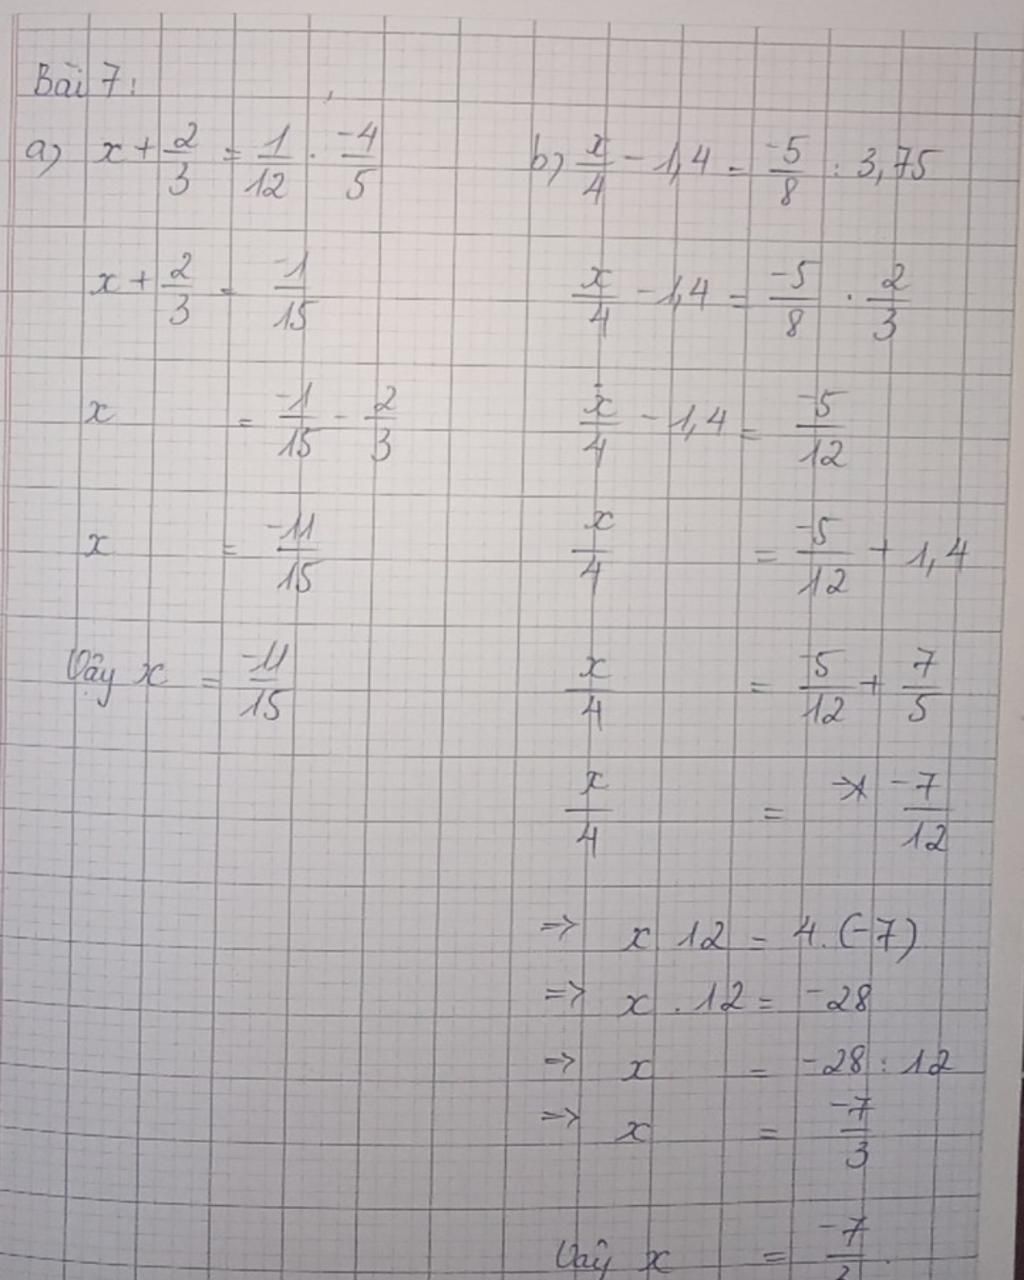 Bài 7:
a) x + 2/3 = 1/12 . -4/5
x + 2/3 = -1/15
x = -1/15 - 2/3
x = -11/15
Vậy x = -11/15
b) x/4 - 1,4 = -5/8 : 3,75
x/4 - 1,4 = -5/8 . 2/3
x/4 - 1,4 = -5/12
x/4 = -5/12 + 1,4
x/4 = -5/12 + 7/5
x/4 = -7/12
=> x 12 = 4. (-7)
=> x . 12 = -28
=> x = -28 : 12
=> x = -7/3
Vậy x = -7/3